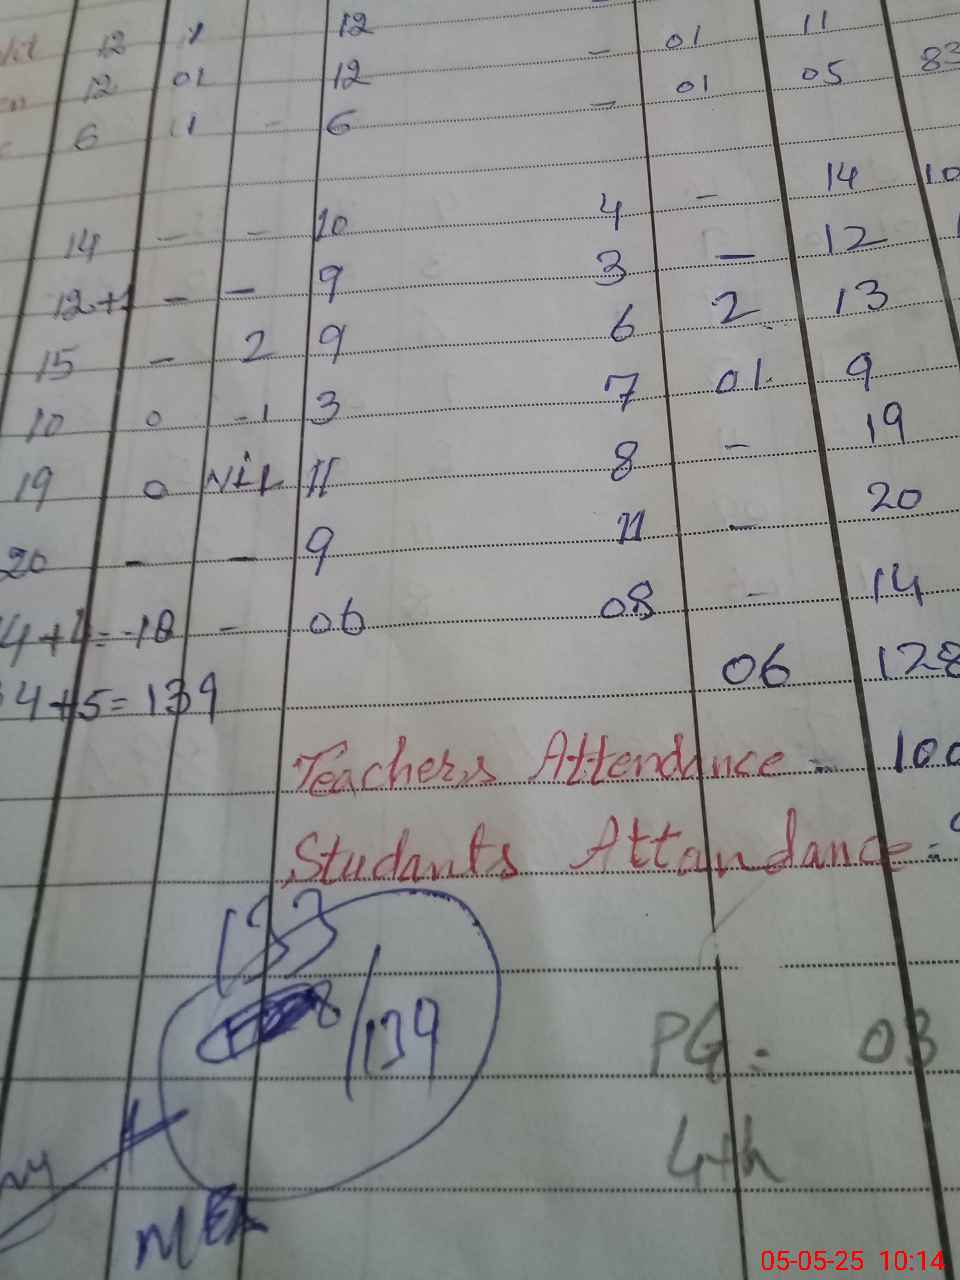 12 11 12 - 01 11
12 01 12 - 01 05 83
6 11 - 6
14 - - 10 4 - 14 10
12+1 - - 9 3 - 12 1
15 - 2 9 6 2 13
10 0 -1 3 7 01 9
19 0 NIL 11 8 - 19
20 - - 9 11 - 20
4+4=18 - 06 08 - 14
4+5=139 06 128
Teachers Attendance = 100
Students Attandance =
133
/139
PG = 03
4th
05-05-25 10:14